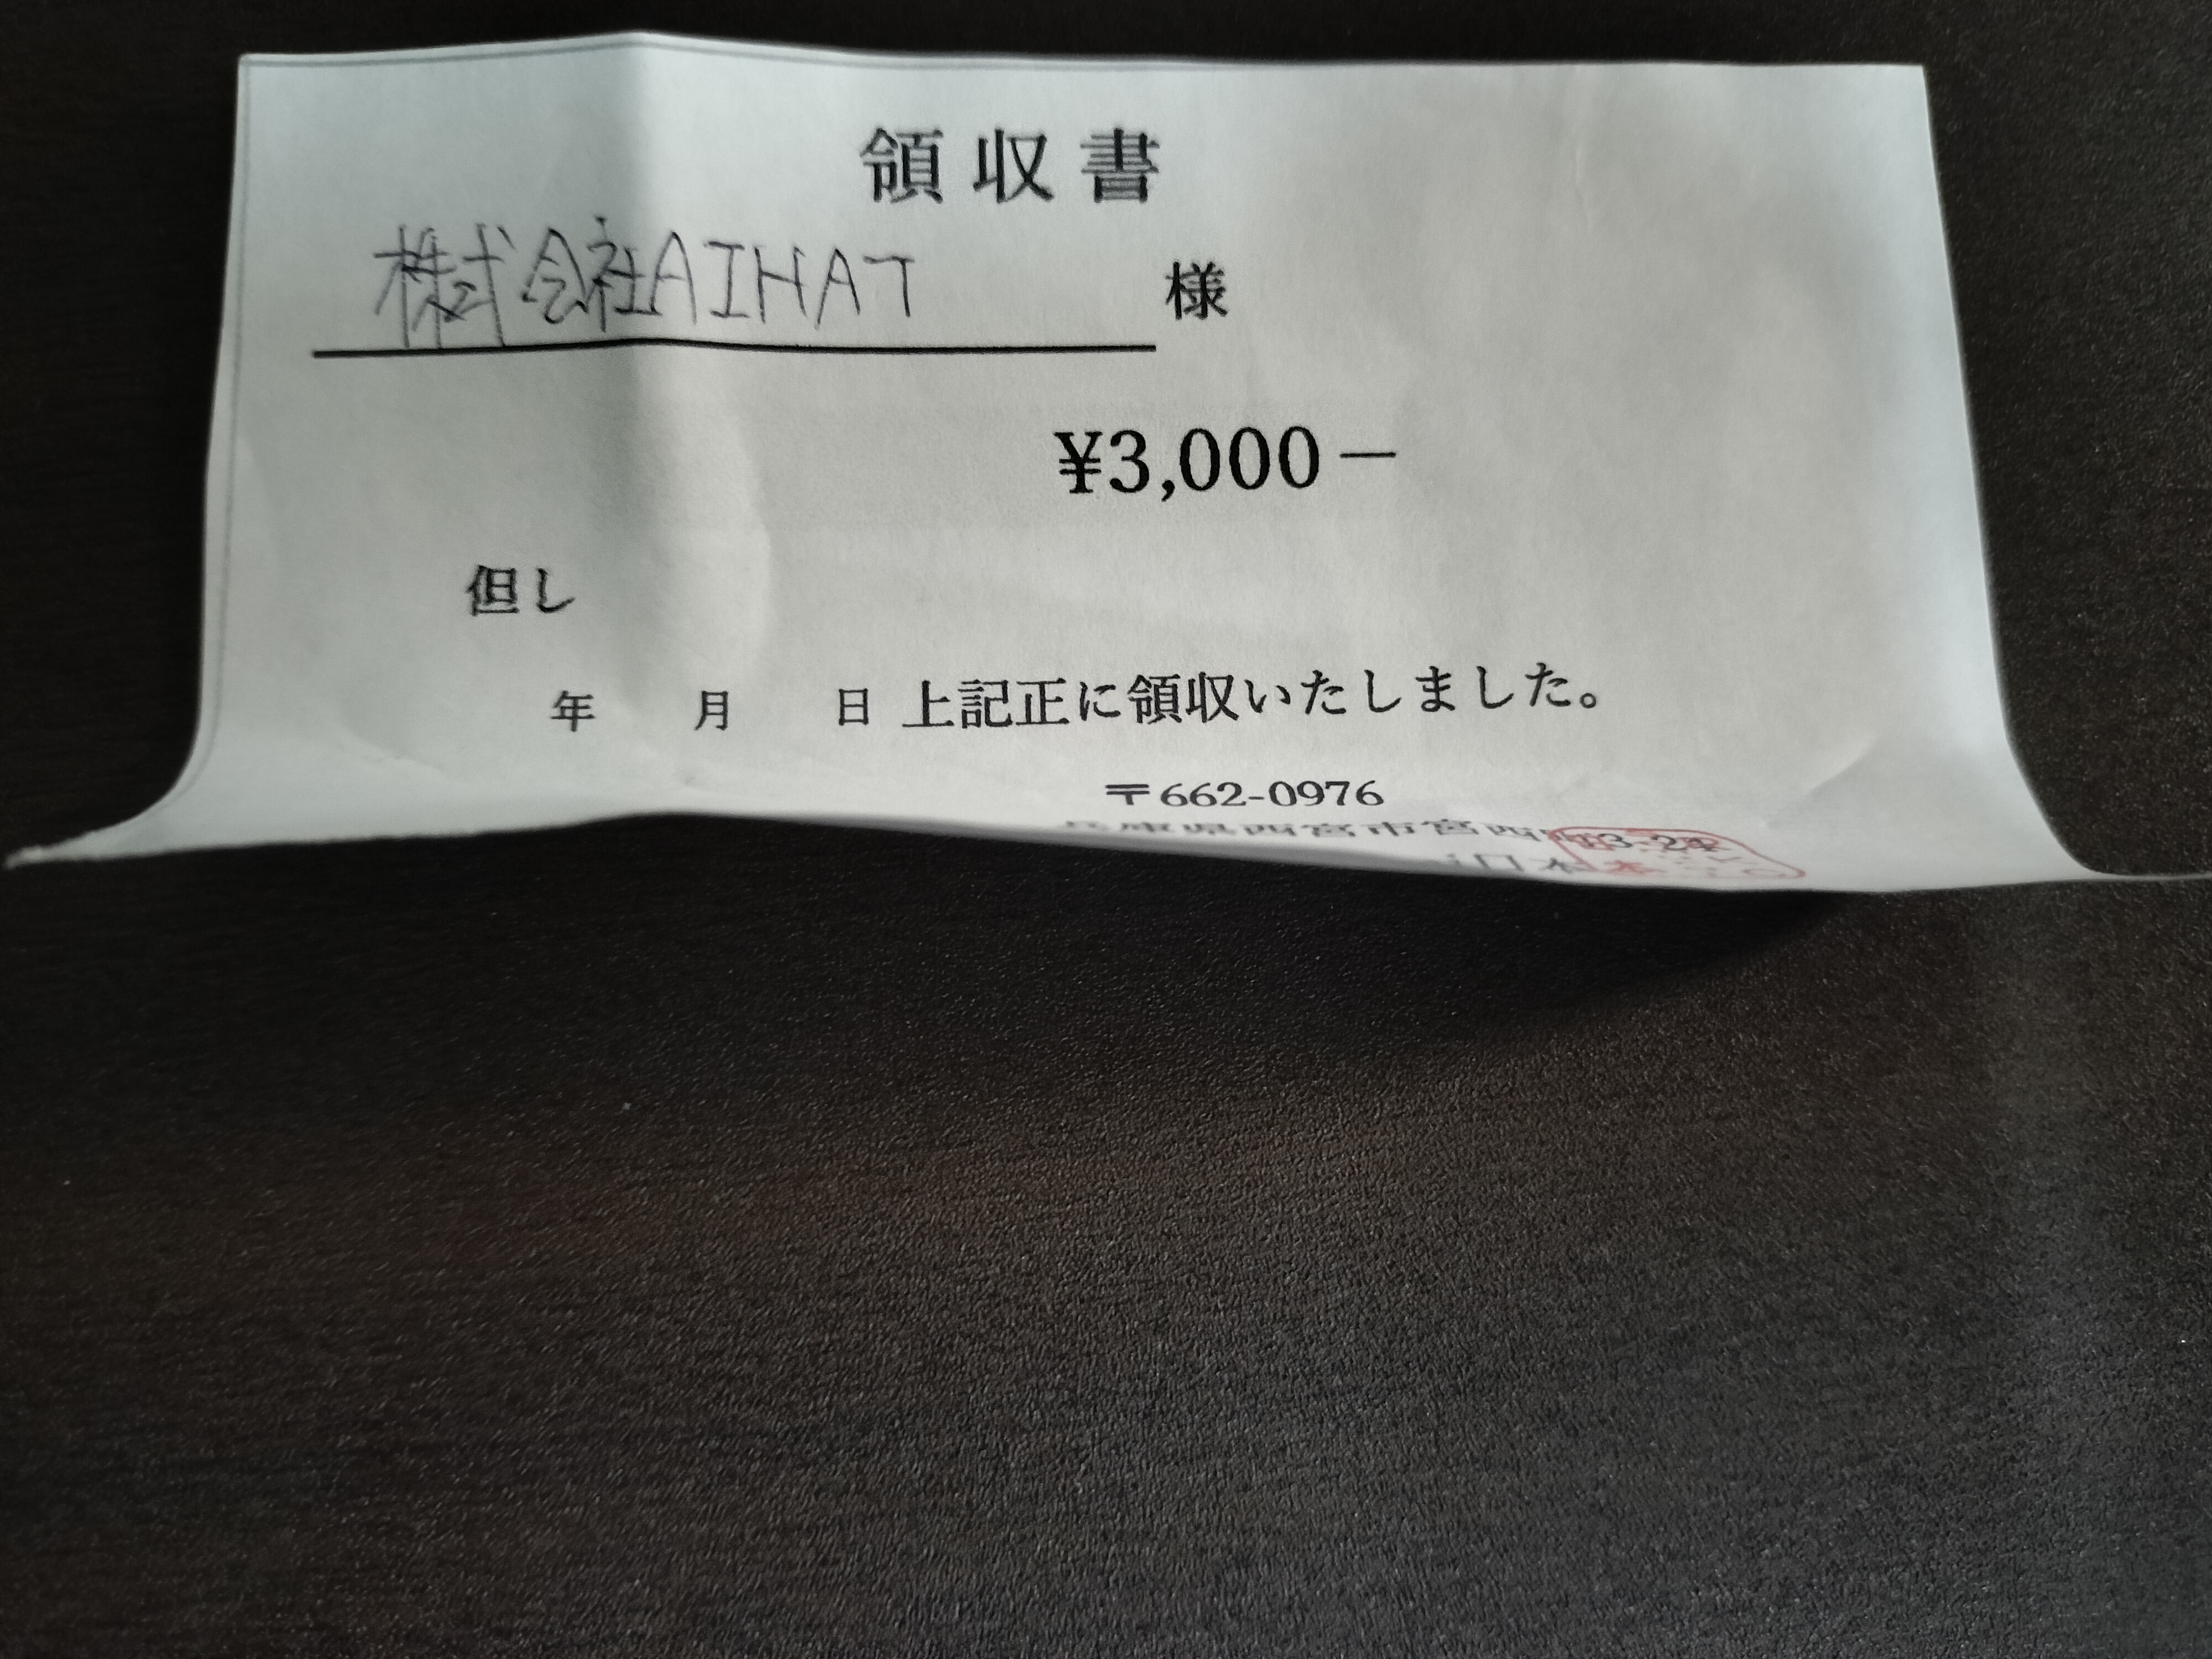 領収書
株式会社AIHAT 様
¥3,000－
但し
年 月 日 上記正に領収いたしました。
〒662-0976
兵庫県西宮市宮西町3-24